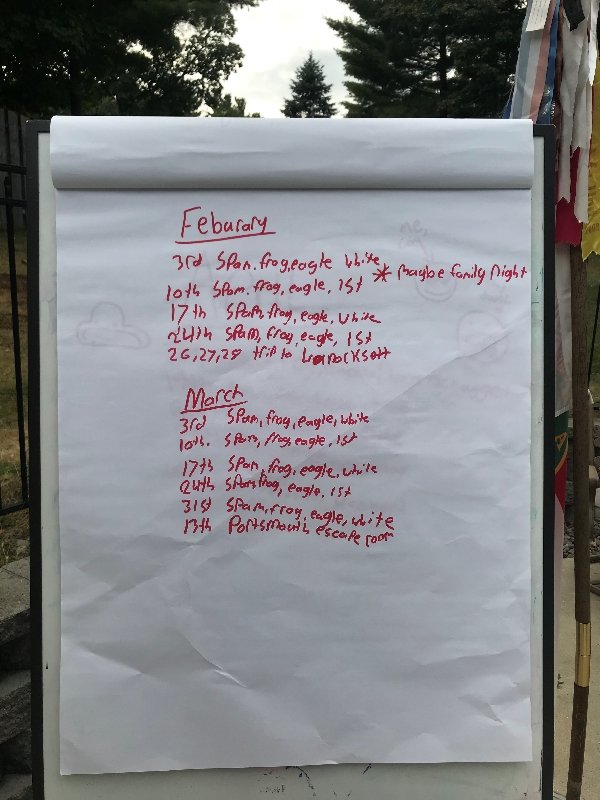 Feburary
3rd Spam, frog, eagle white
* Maybe family Night
10th Spam, frog, eagle, 1st
17th Spam, frog, eagle, white
24th Spam, frog, eagle, 1st
26,27,28 trip to
March
3rd Spam, frog, eagle, white
10th. Spam, frog, eagle, 1st
17th Spam, frog, eagle, white
24th Spam, frog, eagle, 1st
31st Spam, frog, eagle, white
13th Portsmouth escape room